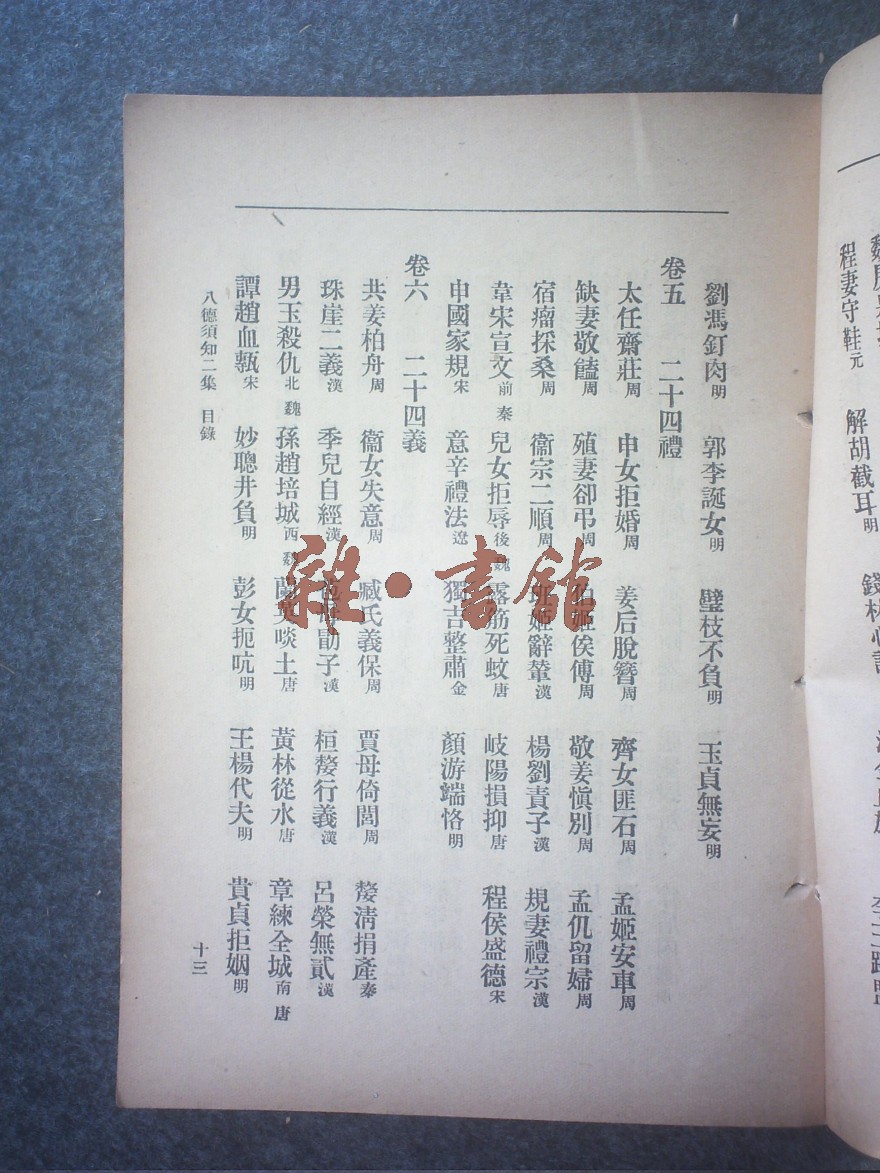 程妻守鞋元 解胡截耳明
劉馮釘肉明 郭李誕女明 璧枝不負明 玉貞無妄明
卷五 二十四禮
太任齋莊周 申女拒婚周 姜后脫簪周 齊女匪石周 孟姬安車周
缺妻敬饁周 殖妻卻弔周 伯姬俟傅周 敬姜慎別周 孟仉留婦周
宿瘤採桑周 衞宗二順周 班姬辭輦漢 楊劉責子漢 規妻禮宗漢
韋宋宣文前秦 兒女拒辱後魏 露筋死蚊唐 岐陽損抑唐 程侯盛德宋
申國家規宋 意辛禮法遼 獨吉整肅金 顏游端恪明
卷六 二十四義
共姜柏舟周 衞女失意周 臧氏義保周 賈母倚閭周 嫠清捐產秦
珠崖二義漢 季兒自經漢 勖子漢 桓嫠行義漢 呂榮無貳漢
男玉殺仇北魏 孫趙培城西魏 蘭英啖土唐 黃林從水唐 章練全城南唐
譚趙血甎宋 妙聰井負明 彭女扼吭明 王楊代夫明 貴貞拒姻明
八德須知二集 目錄 十三
雜·書館